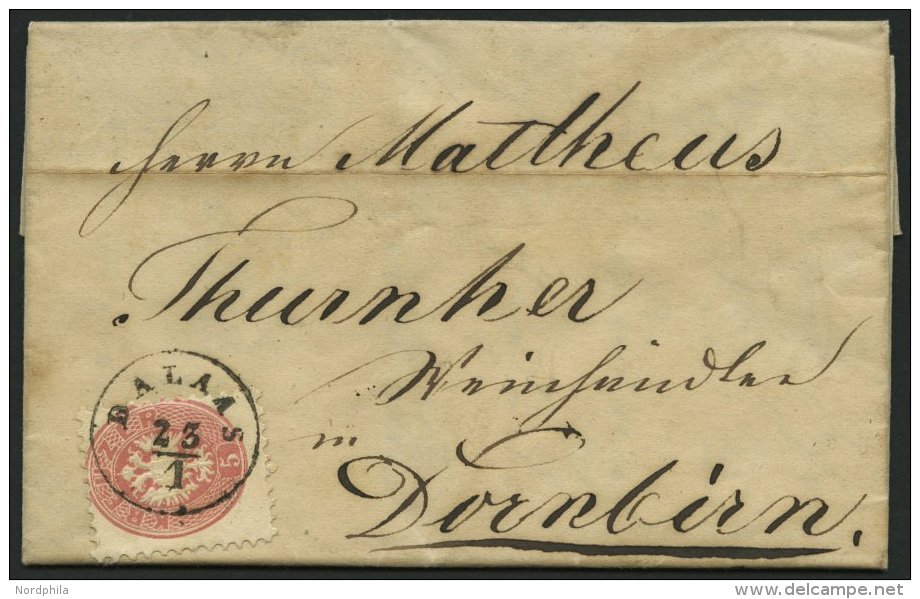 Herrn Mattheus
Thurnher
Weinhändler
in
Dornbirn.
DALAAS
23
1
5 KR
Nordphila
delcampe.net